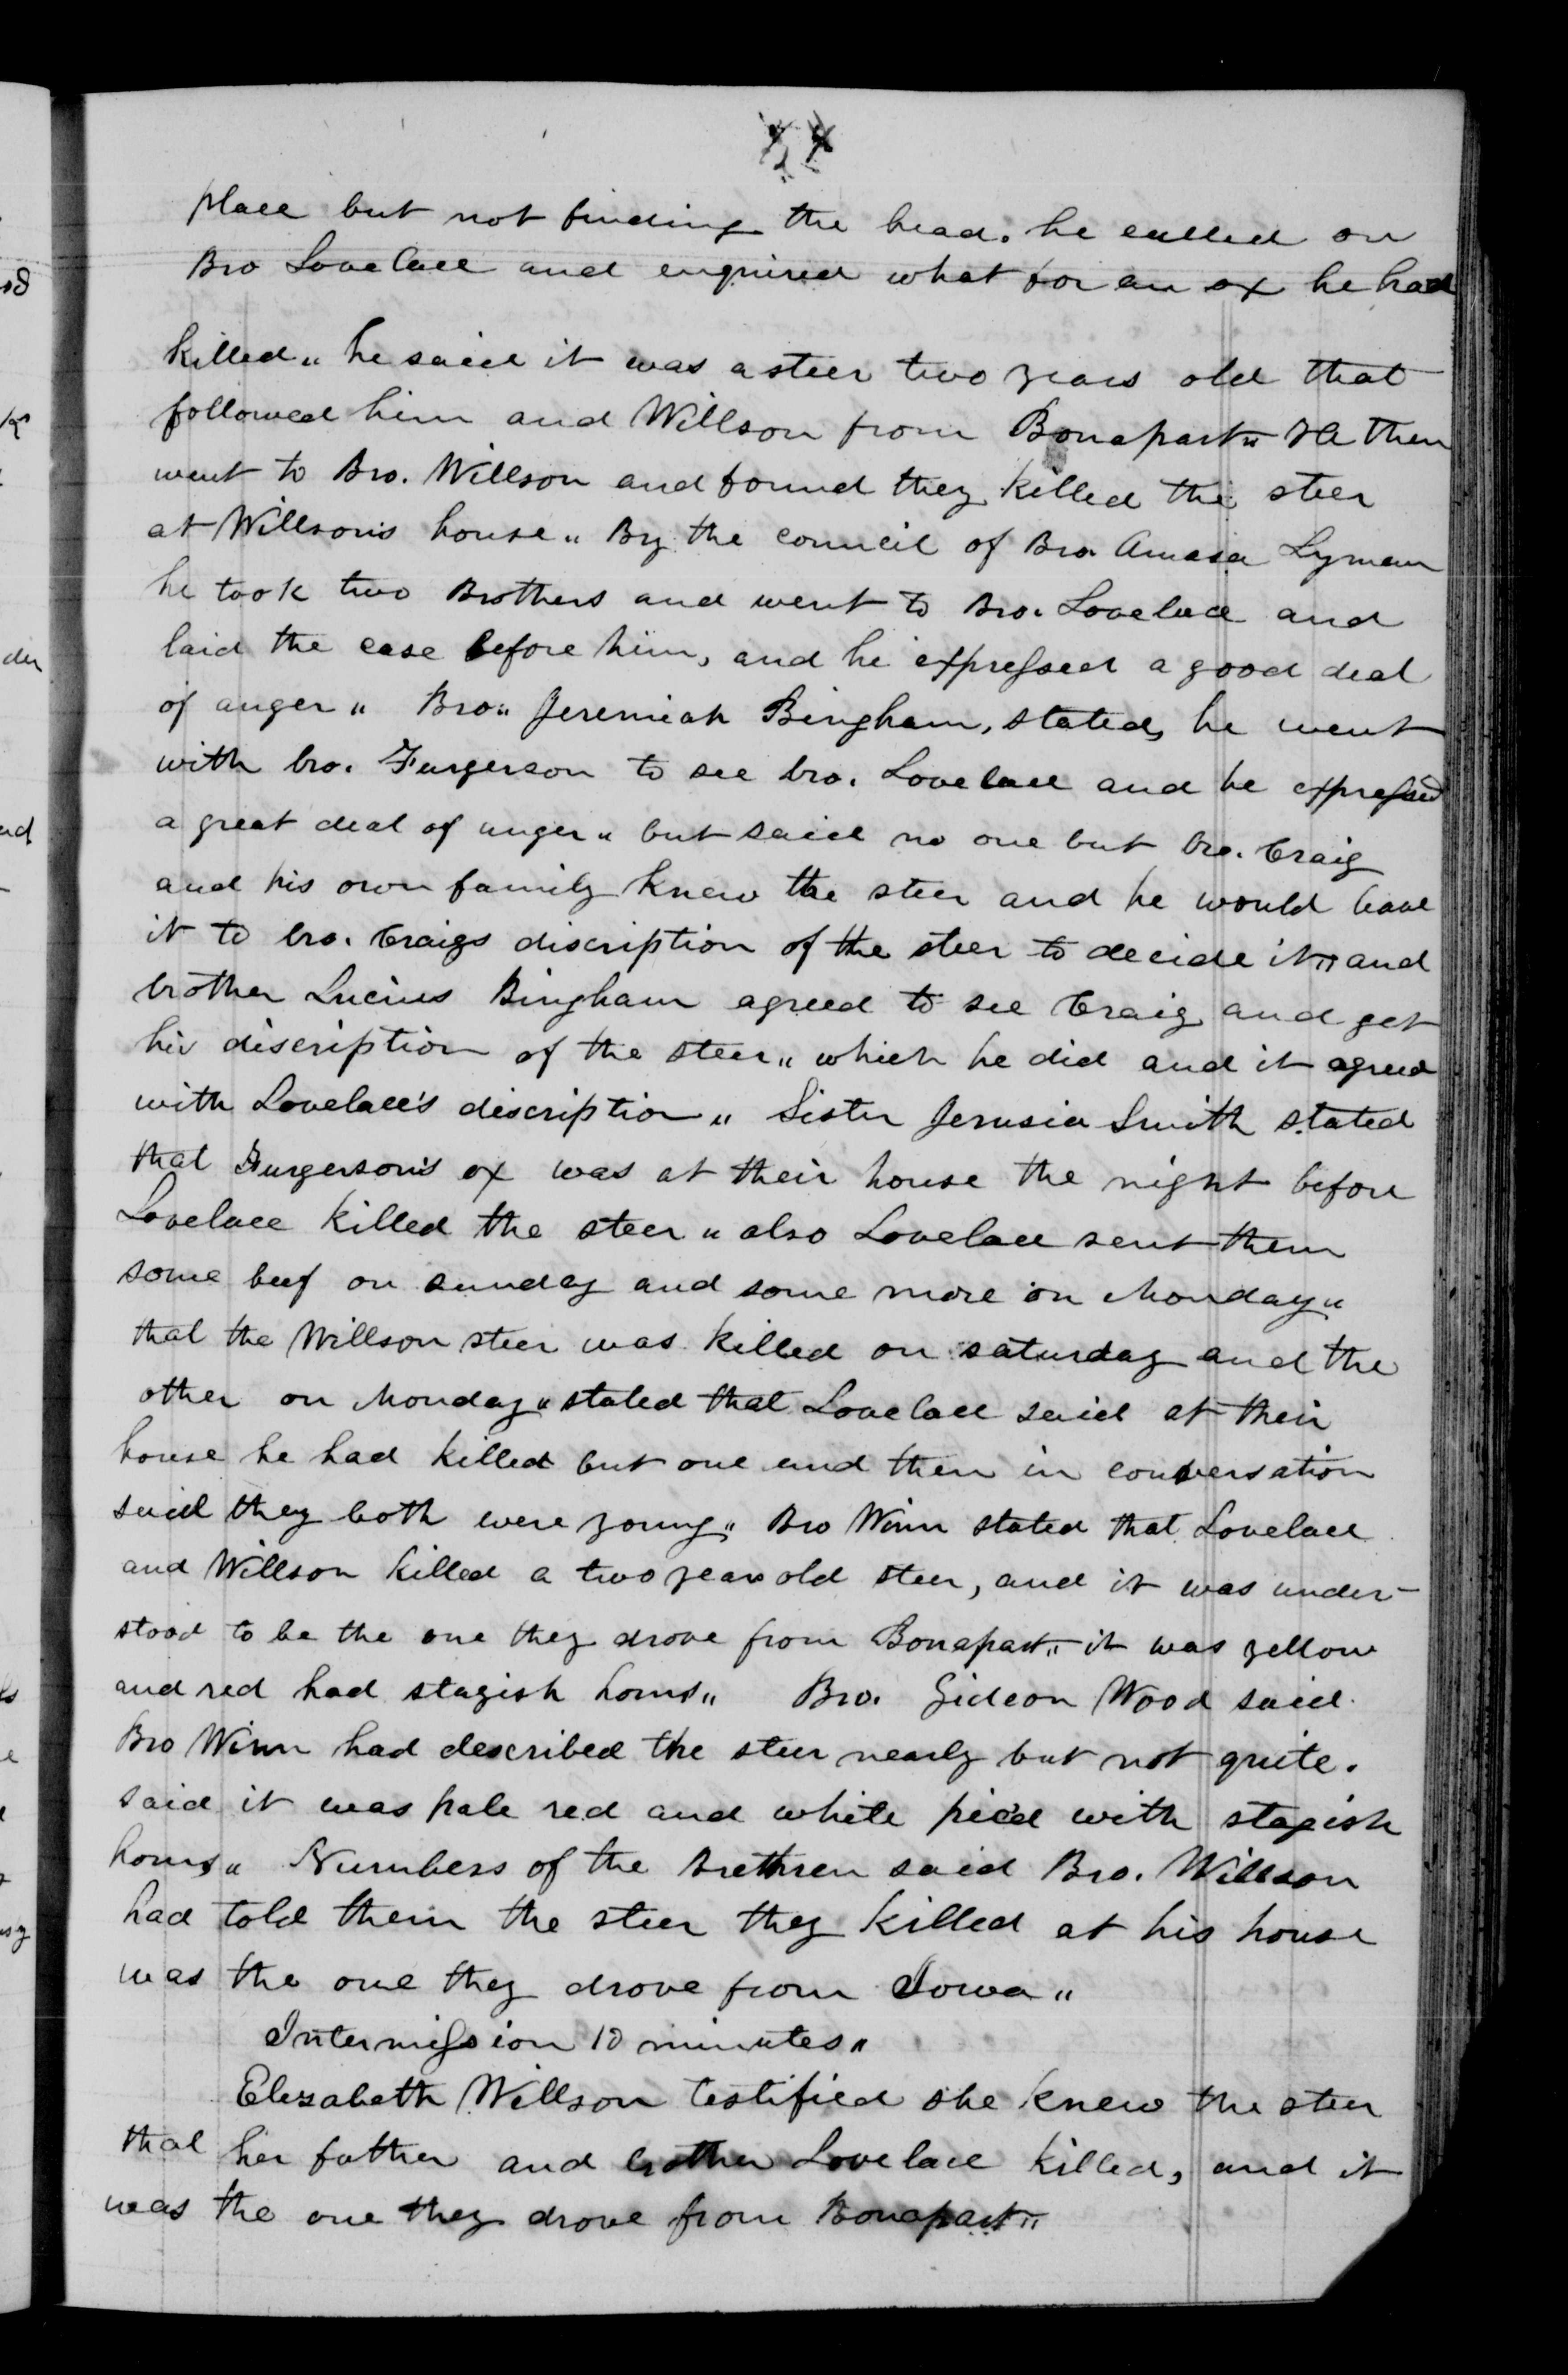 place but not finding the head. he called on
Bro Lovelace and enquired what for an ox he had
killed" he said it was a steer two years old that
followed him and Willson from Bonapart" He then
went to Bro. Willson and found they killed the steer
at Willson's house" By the council of Bro. Amasa Lyman
he took two Brothers and went to Bro. Lovelace and
laid the case before him, and he expressed a good deal
of anger" Bro" Jeremiah Bingham, stated, he went
with bro. Furgerson to see bro. Lovelace and he expressed
a great deal of anger" but said no one but bro. Craig
and his own family knew the steer and he would leave
it to bro. Craigs discription of the steer to decide it" and
brother Lucius Bingham agreed to see Craig and get
his discription of the steer" which he did and it agreed
with Lovelace's discription" Sister Jerusia Smith stated
that Furgerson's ox was at their house the night before
Lovelace killed the steer" also Lovelace sent them
some beef on sunday and some more on Monday"
that the Willson steer was killed on saturday and the
other on Monday" stated that Lovelace said at their
house he had killed but one and then in conversation
said they both were young" Bro Winn stated that Lovelace
and Willson killed a two year old steer, and it was under-
stood to be the one they drove from Bonapart" it was yellow
and red had stagish horns" Bro. Gideon Wood said
Bro Winn had described the steer nearly but not quite.
said it was pale red and white pied with stagish
horns" Numbers of the Brethren said Bro. Willson
had told them the steer they killed at his house
was the one they drove from Iowa"
Intermission 10 minutes"
Elizabeth Willson testified she knew the steer
that her father and brother Lovelace killed, and it
was the one they drove from Bonapart"